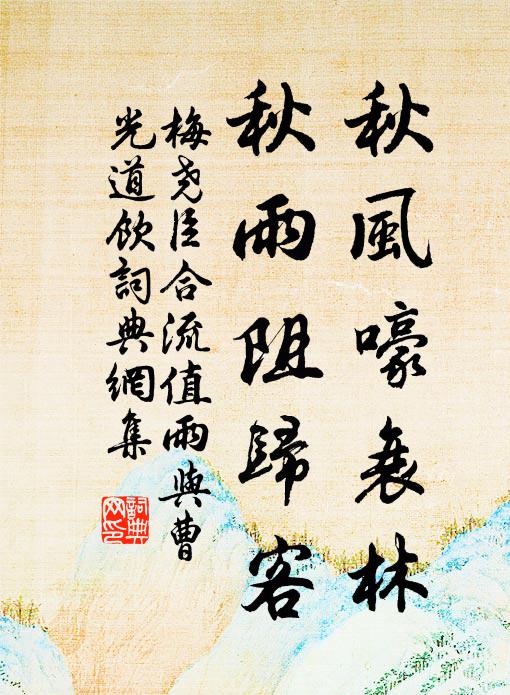 秋風嚎衰林
秋雨阻歸客
梅堯臣合流值雨與曹
光道飲詞典網集
詞典
网印